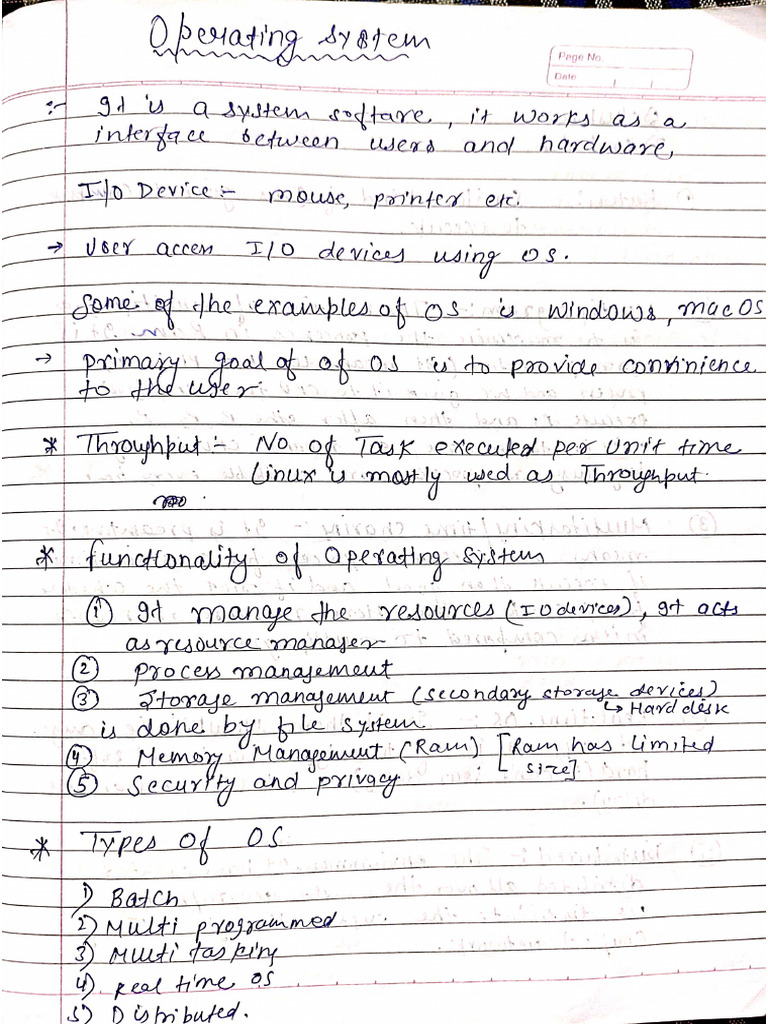 Operating System
Page No.
Date
:- It is a system softare, it works as a
interface between users and hardware,
I/O Device :- mouse, printer etc.
→ User access I/O devices using OS.
Some of the examples of OS is windows, mac OS
→ primary goal of of OS is to provide convinience
to the user.
* Throughput :- No. of Task executed per unit time
Linux is mostly used as Throughput.
* functionality of Operating System
① It manage the resources (IO devices), It acts
as resource manager
② process management
③ Storage management (secondary storage devices)
↳ Hard disk
is done by file system
④ Memory Management (Ram) [Ram has limited
size]
⑤ Security and privacy
* Types Of OS
1) Batch
2) Multi programmed
3) Multi tasking
4) Real time OS
5) Distributed.